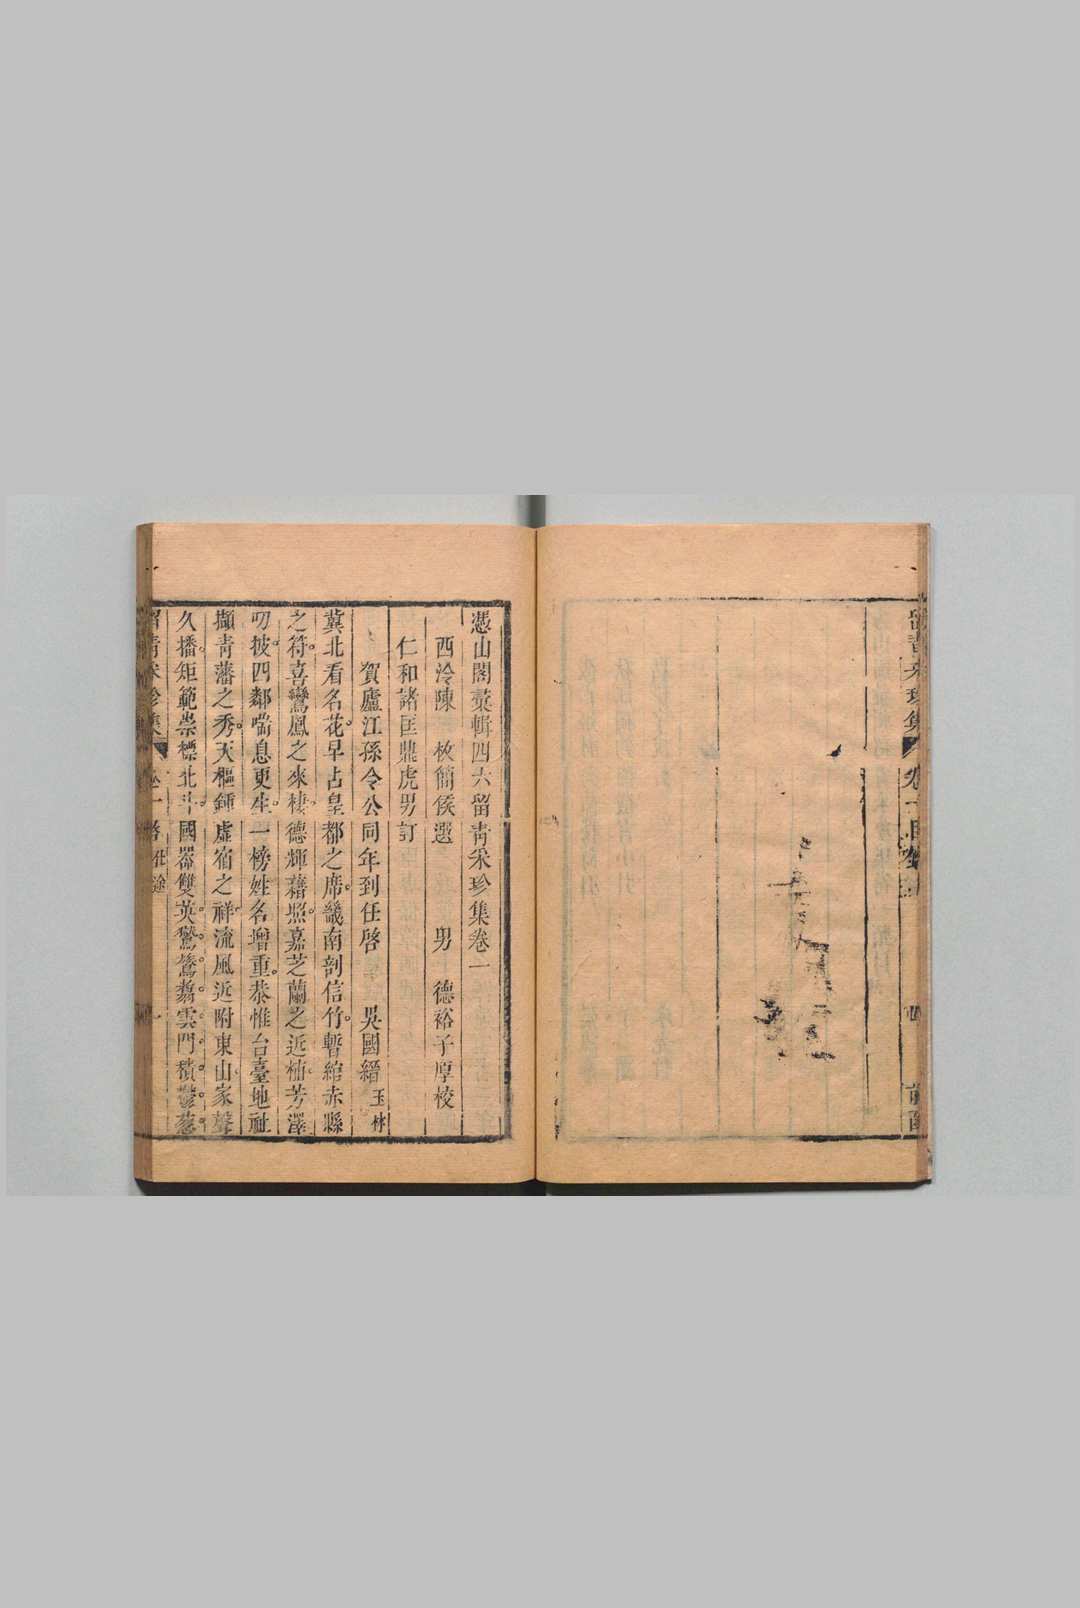 憑山閣彚輯四六留青采珍集卷一
西泠陳 枚簡侯選 男 德裕子厚校
仁和諸匡鼎虎男訂
賀廬江孫令公同年到任啓 吳國縉玉林
冀北看名花早占皇都之席。畿南剖信竹。暫綰赤縣
之符。喜鸞鳳之來棲。德輝藉照。嘉芝蘭之近植。芳澤
叨披。四鄰喘息更生。一榜姓名增重。恭惟台臺地祉
擷青藩之秀。天樞鍾虛宿之祥。流風近附東山。家聲
久播。矩範崇標北斗。國器雙英。鸑鷟翥雲門。積鬱葱
留青采珍集 卷一 啓 仕途 一
留青采珍集 卷一目錄 四